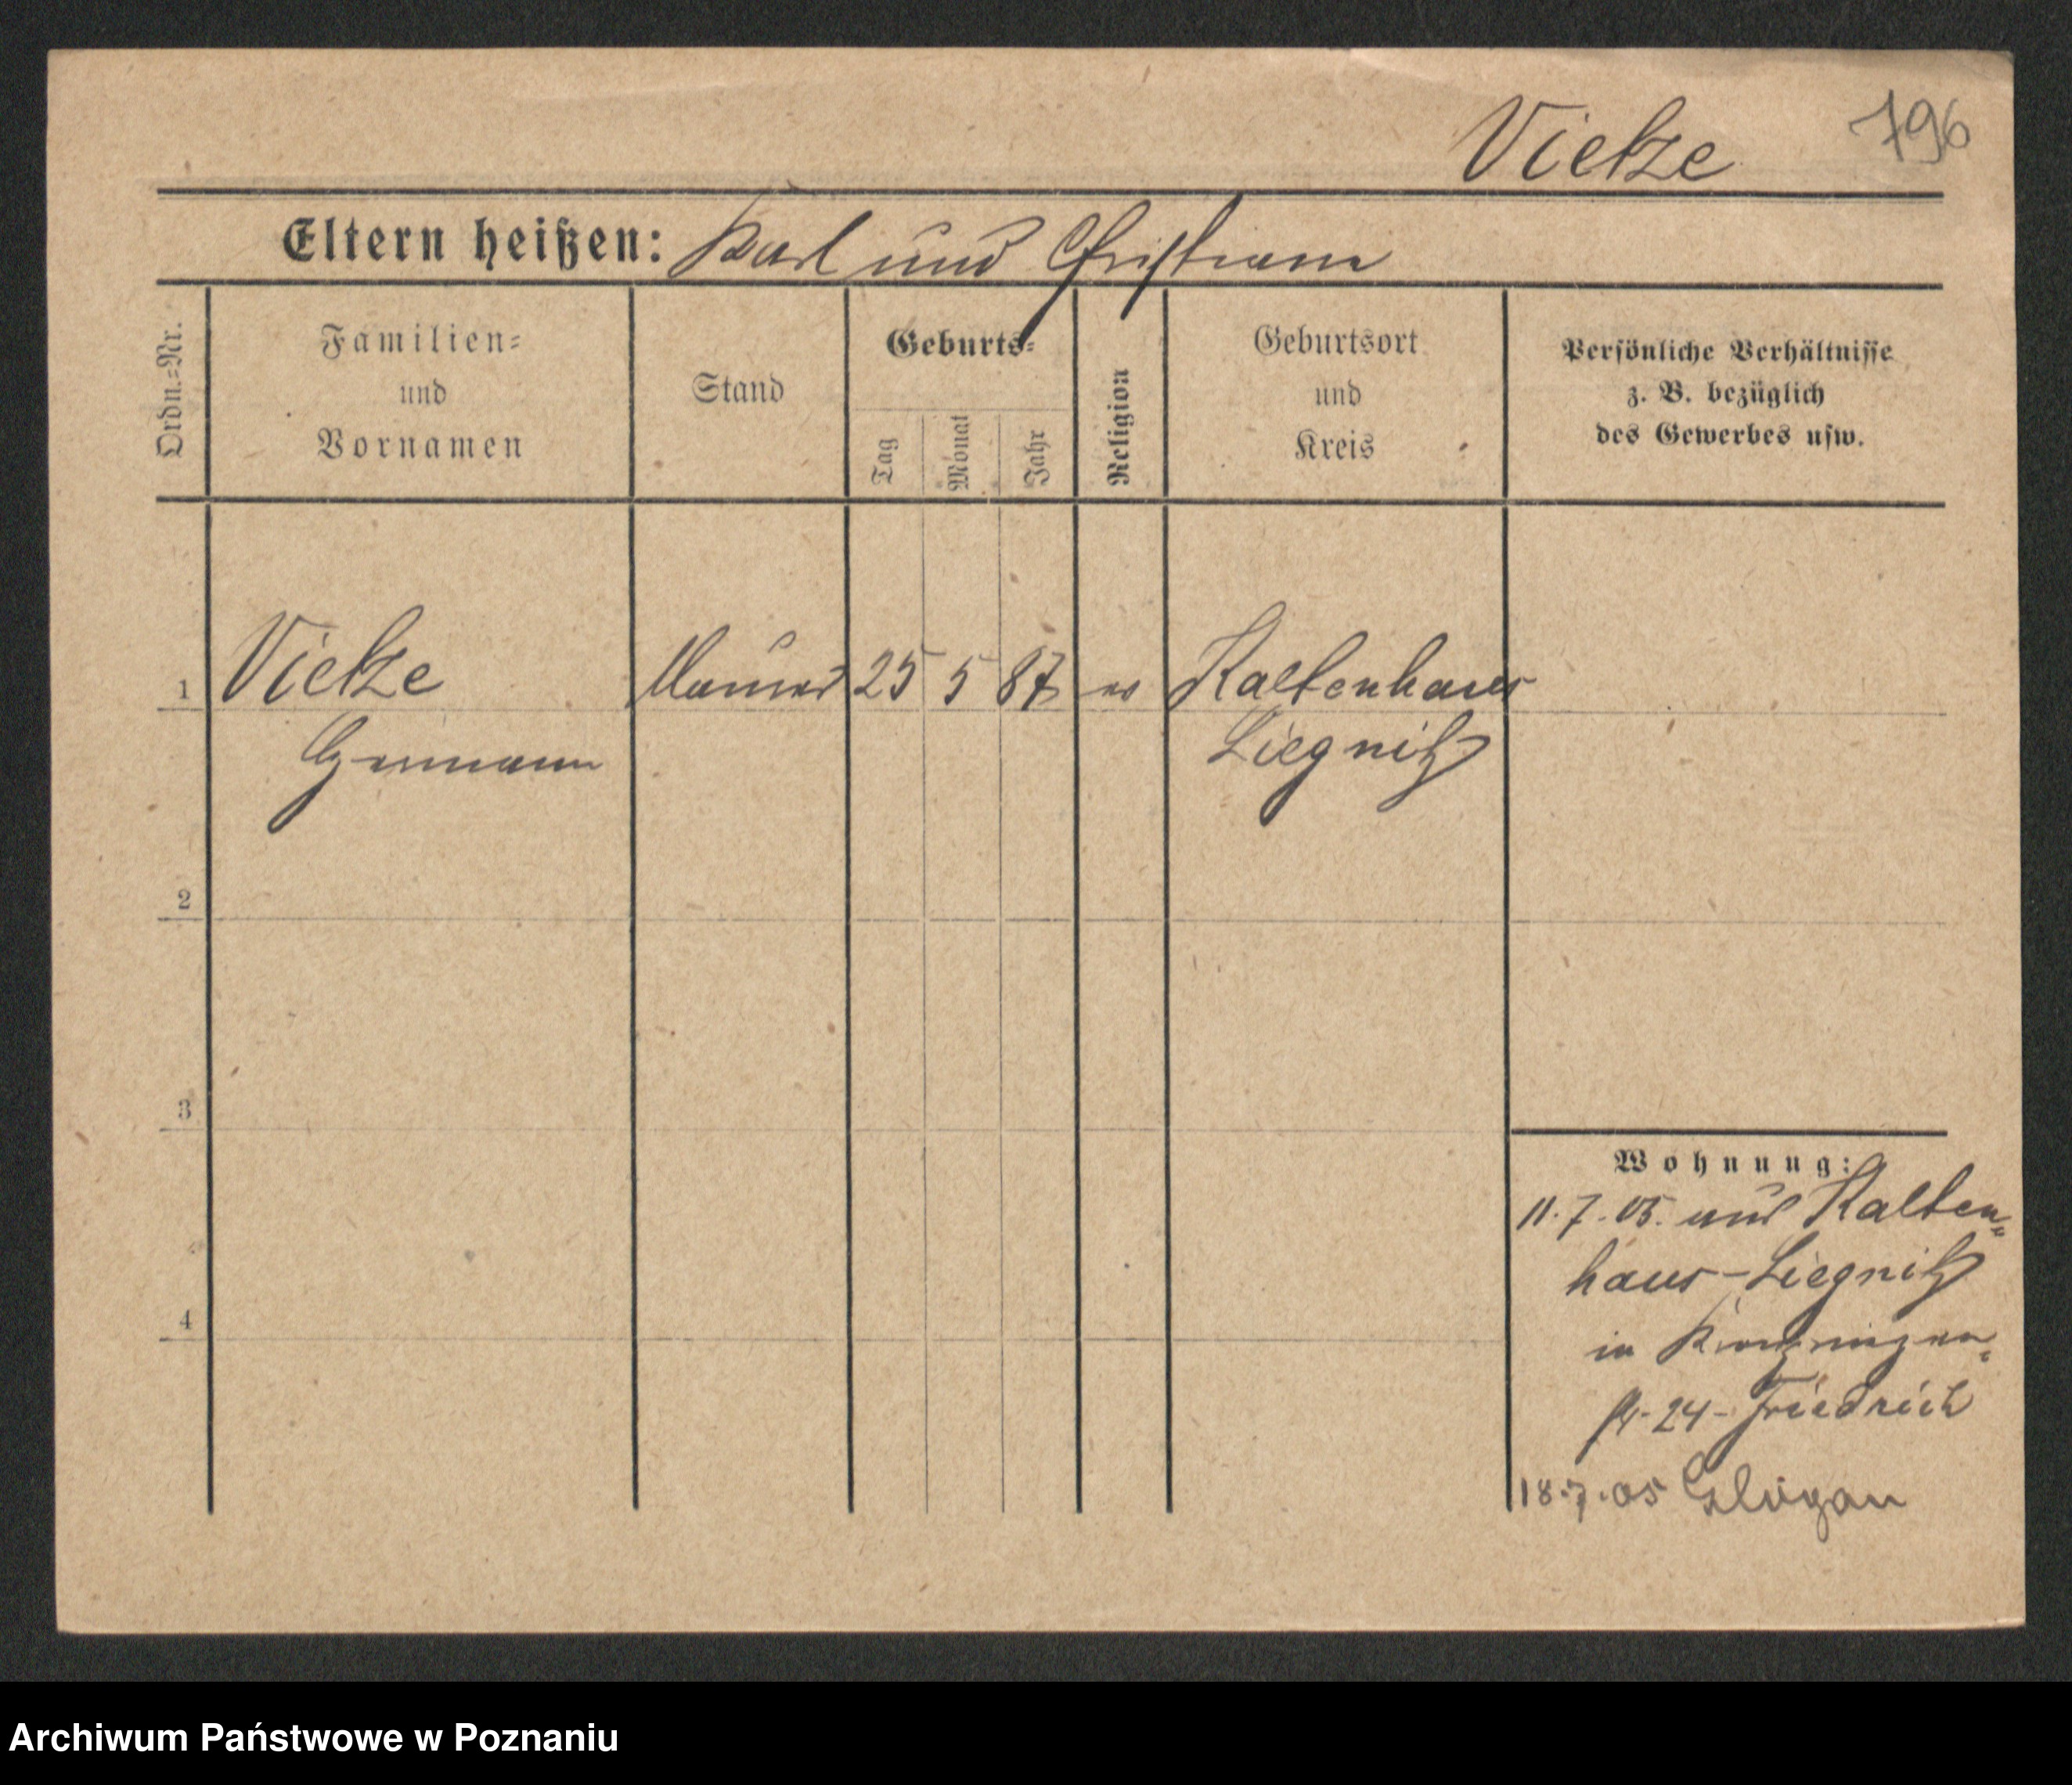 Vietze 796
Eltern heißen: Karl und Christiane
Ordn.=Nr.
Familien=
und
Vornamen
Stand
Geburts=
Tag
Monat
Jahr
Religion
Geburtsort
und
Kreis
Persönliche Verhältnisse
z. B. bezüglich
des Gewerbes usw.
1 Vietze Maurer 25 5 87 ev Kaltenhaus
Hermann Liegnitz
2
3
4
Wohnung:
11.7.05. aus Kalten=
haus-Liegnitz
in
24 - Friedrich
18.7.05 Glogau
Archiwum Państwowe w Poznaniu